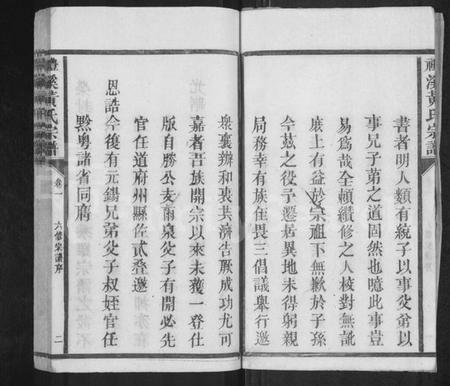 禮溪黃氏宗譜
書者明人類有統子以事父弟以
事兄子弟之道固然也噫此事豈
易爲哉全頼纘修之人校對無訛
庶上有益於宗祖下無歉於子孫
今茲之役予遷居異地未得躬親
局務幸有族佳畏三倡議舉行邀
衆襄辦和衷共濟告厥成功尤可
嘉者吾族開宗以來未獲一登仕
版自勝公支甫泉父子有開必先
官任道府州縣佐貳疊邀
恩誥今復有元錫兄弟父子叔姪官任
黔粵諸省同膺
禮溪黃氏宗譜
卷一
六修宗譜序
二